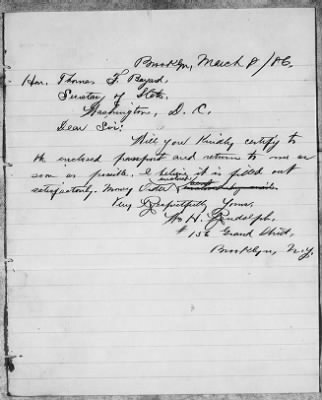 Brooklyn, March 8/86.
Hon. Thomas F. Bayard
Secretary of State.
Washington, D. C.
Dear Sir:
Will you Kindly certify to
the enclosed passport and return to me as
soon as possible. I believe it is filled out
satisfactorily. Money Order enclosed
Very Respectfully Yours.
Wm H. Randolph.
# 156 Grand Street,
Brooklyn, N.Y.